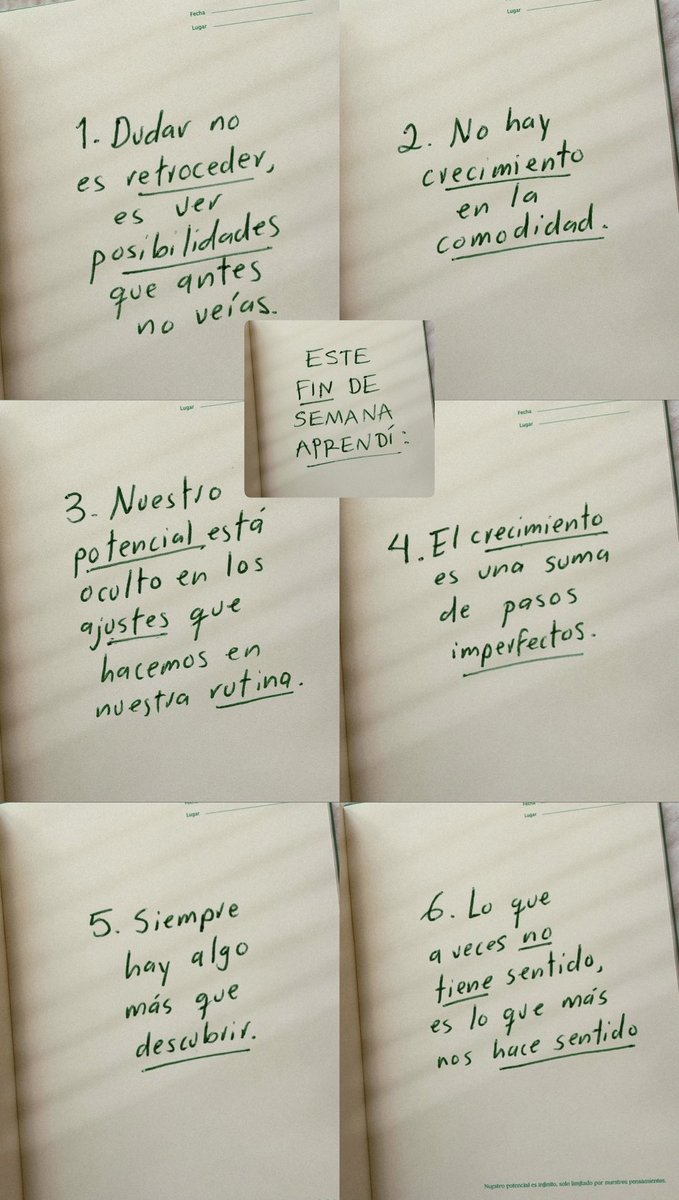 Fecha
Lugar
1. Dudar no
es retroceder,
es ver
posibilidades
que antes
no veías.
Lugar
2. No hay
crecimiento
en la
comodidad.
ESTE
FIN DE
SEMANA
APRENDÍ:
Lugar
3. Nuestro
potencial está
oculto en los
ajustes que
hacemos en
nuestra rutina.
Fecha
Lugar
4. El crecimiento
es una suma
de pasos
imperfectos.
Lugar
5. Siempre
hay algo
más que
descubrir.
Fecha
Lugar
6. Lo que
a veces no
tiene sentido,
es lo que más
nos hace sentido
Nuestro potencial es infinito, solo limitado por nuestros pensamientos.